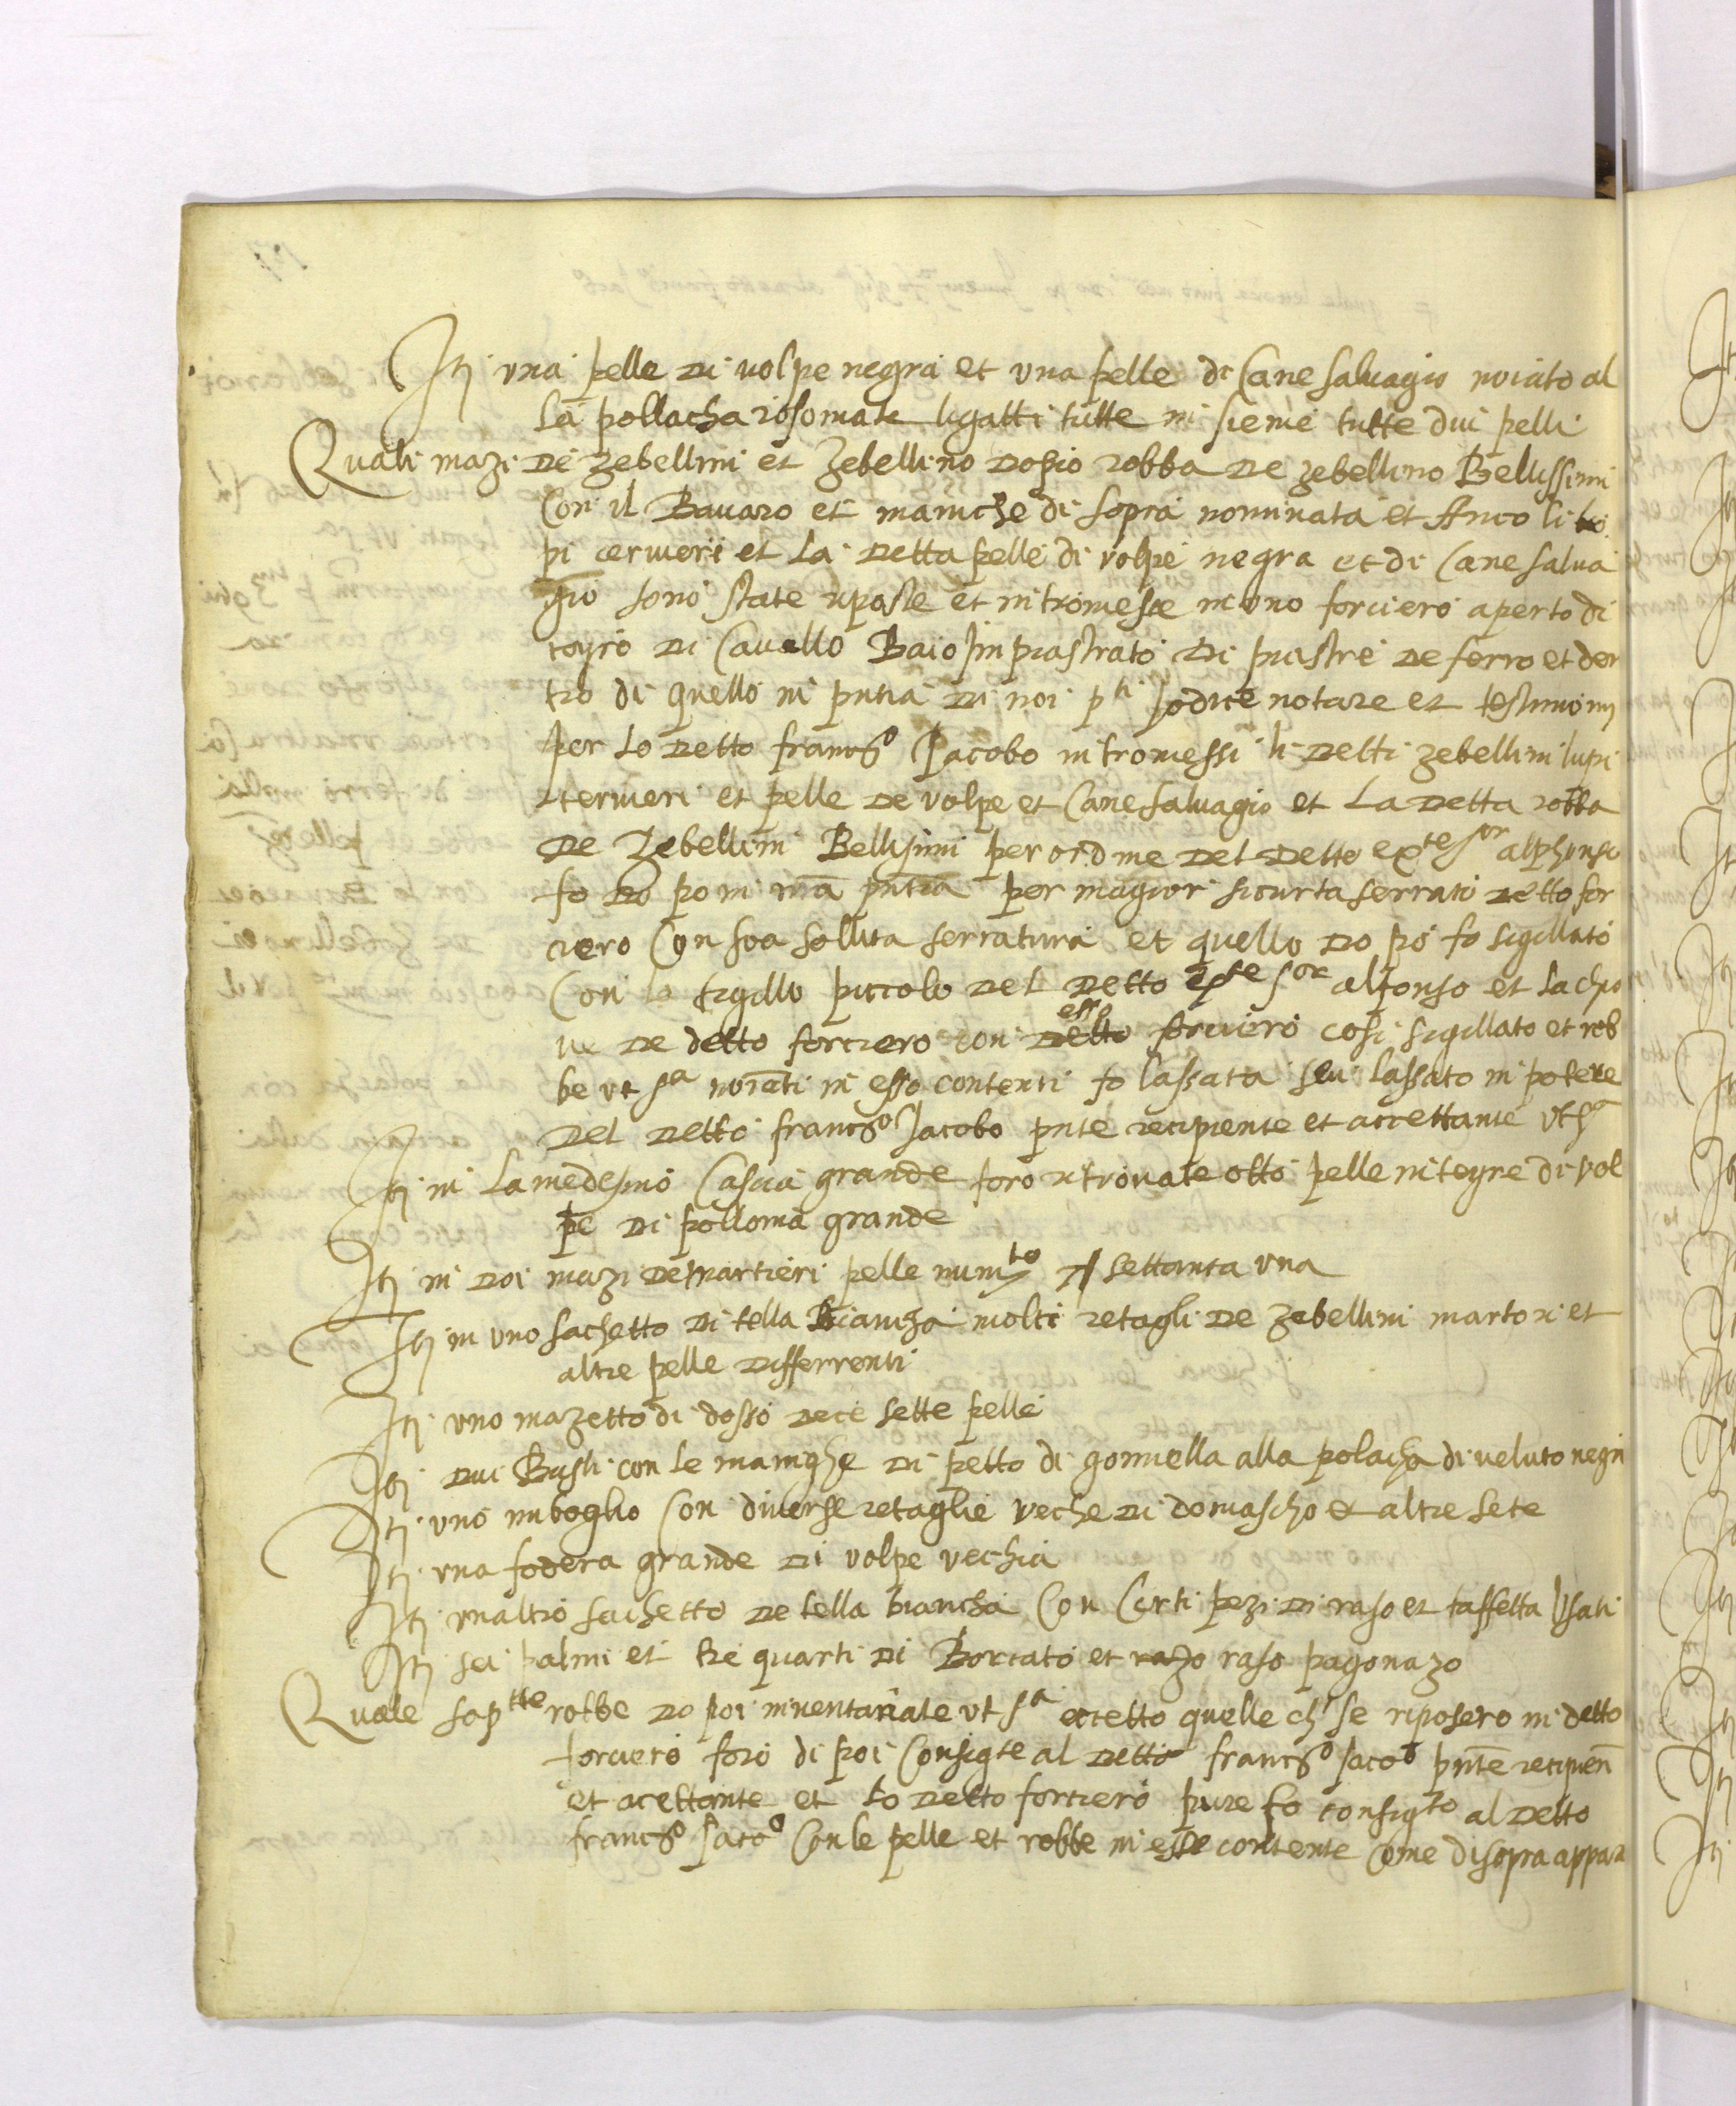 Itj una pelle di volpe negra et una pelle di Cane salvagio noiato al
la pollacha rosomate ligatti tutte insieme tutte dui pelli
Quali mazi de zebellini et zebellino dopio robba de zebellino Bellissimi
Con il Bavaro et maniche di sopra nominata et Anco li lu
pi cerveri et la detta pelle di volpe negra et di Cane salva
gio sono state riposte et intromesse in uno forciero aperto di
coyro di Cavallo Baio Inpiastrato di piastre de ferro et den
tro di quello in pntia di noi pti Jodice notare et testimonij
per lo detto francso Jacobo intromessi li detti zebellini lupi
cerveri et pelle de volpe et Cane salvagio et la detta robba
de Zebellini Bellisimi per ordine del detto exte sor alphonso
fo do po in nra pntia per magior sicurta serrato detto for
ciero Con soa sollita serratura et quello do po fo sigillato
Con lo sigillo piccolo del detto exte sor alfonso et la chia
ve de detto forciero con detto esso forciero cosi sigillato et rob
be ut sa noiati in esso contenti fo lassata seu lassato in potere
del detto francso Jacobo pnte recipiente et accettante ut sa
Itj in la medesmo Cascia grande foro ritrovate otto pelle integre di vol
pe di pollonia grande
Itj in doi mazi de martieri pelle numro settanta una
Itj in uno sachetto di tella Biancha molti retagli de zebellini martori et
altre pelle differrenti
Itj uno mazetto di dossi dece sette pelle
Itj dui Busti con le manighe di petto di gonnella alla polacha di veluto negro
Itj uno imboglio Con diverse retaglie veche di domascho et altre sete
Itj una fodera grande di volpe vechia
Itj unaltro sachetto de tella biancha Con Certi pezi di raso et taffetta Usati
Itj sei palmi et tre quarti di Borcato et razo raso pagonazo
Quale soptte robbe do poi inventariate ut sa eccetto quelle chi se riposero in detto
forciero foro di poi Consigte al detto francso Jacoo pnte recipien
et acettante et lo detto forciero pure fo consigto al detto
francso Jacoo Con le pelle et robbe in esse contente Come di sopra appara